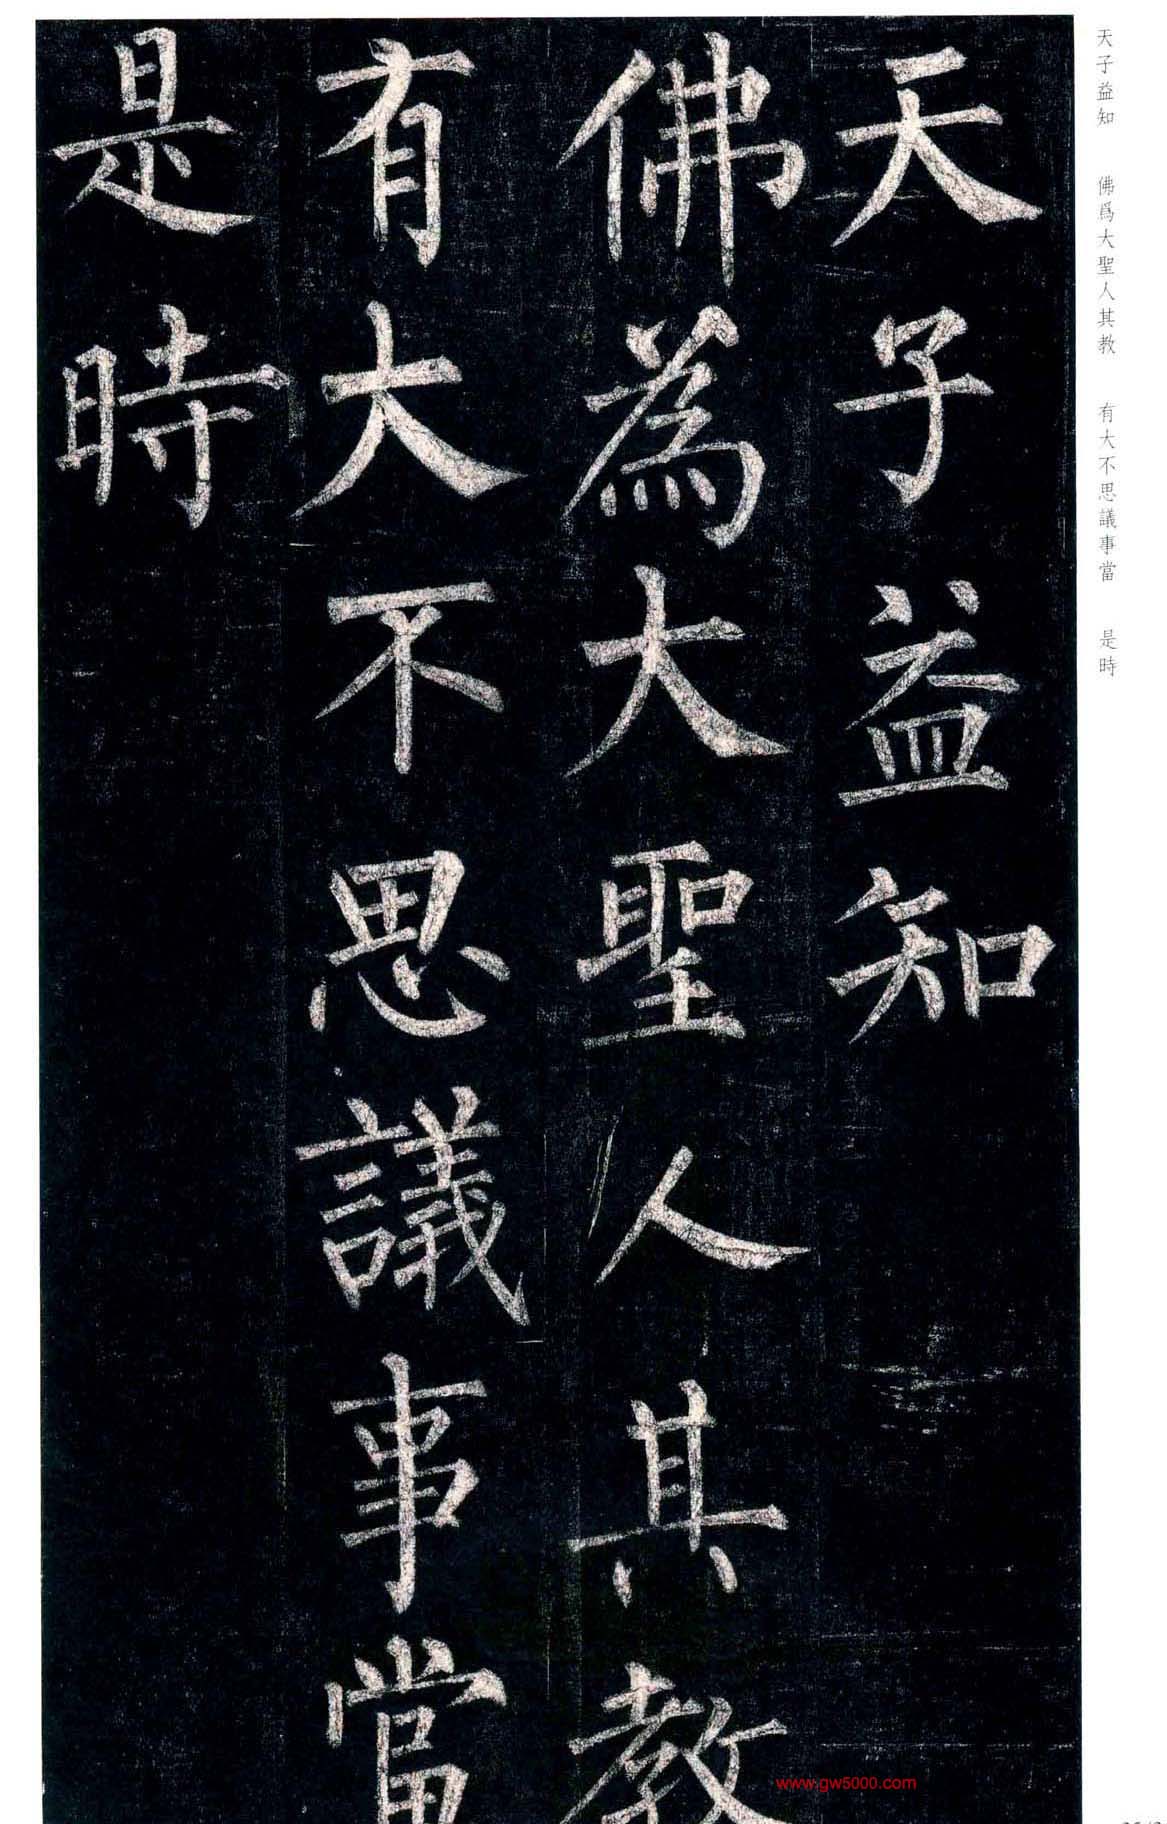 天子益知
佛為大聖人其教
有大不思議事當
是時
天子益知 佛爲大聖人其教 有大不思議事當 是時
www.gw5000.com